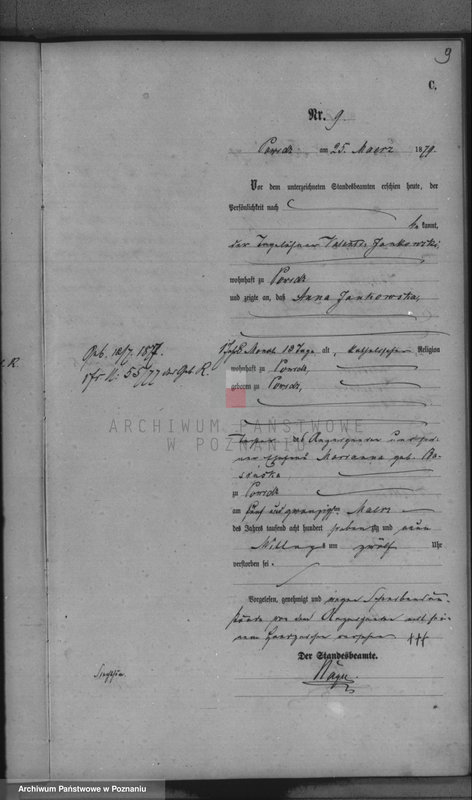 9
C.
Nr. 9.
Powidz am 25. Maerz 1879.
Vor dem unterzeichneten Standesbeamten erschien heute, der
Persönlichkeit nach
be kannt,
der Tagelöhner Jankowski,
wohnhaft zu Powidz
und zeigte an, daß Anna Jankowska,
8 Monat 13 Tage alt, katholischer Religion
wohnhaft zu Powidz,
geboren zu Powidz,
Geb. 12/7. 1877.
Nr. 55/77 des Geb. R.
R.
ARCHIWUM PAŃSTWOWE
W POZNANIU
Tochter des Anzeigenden und sei-
ner Ehefrau Marianna geb.
zu Powidz
am fünf und zwanzigsten Maerz
des Jahres tausend acht hundert sieben zig und neun
Mittags um zwölf Uhr
verstorben sei.
Vorgelesen, genehmigt und wegen Schreibensun-
kunde von dem Anzeigenden mit sei-
nem Handzeichen versehen +++
Der Standesbeamte.
Archiwum Państwowe w Poznaniu